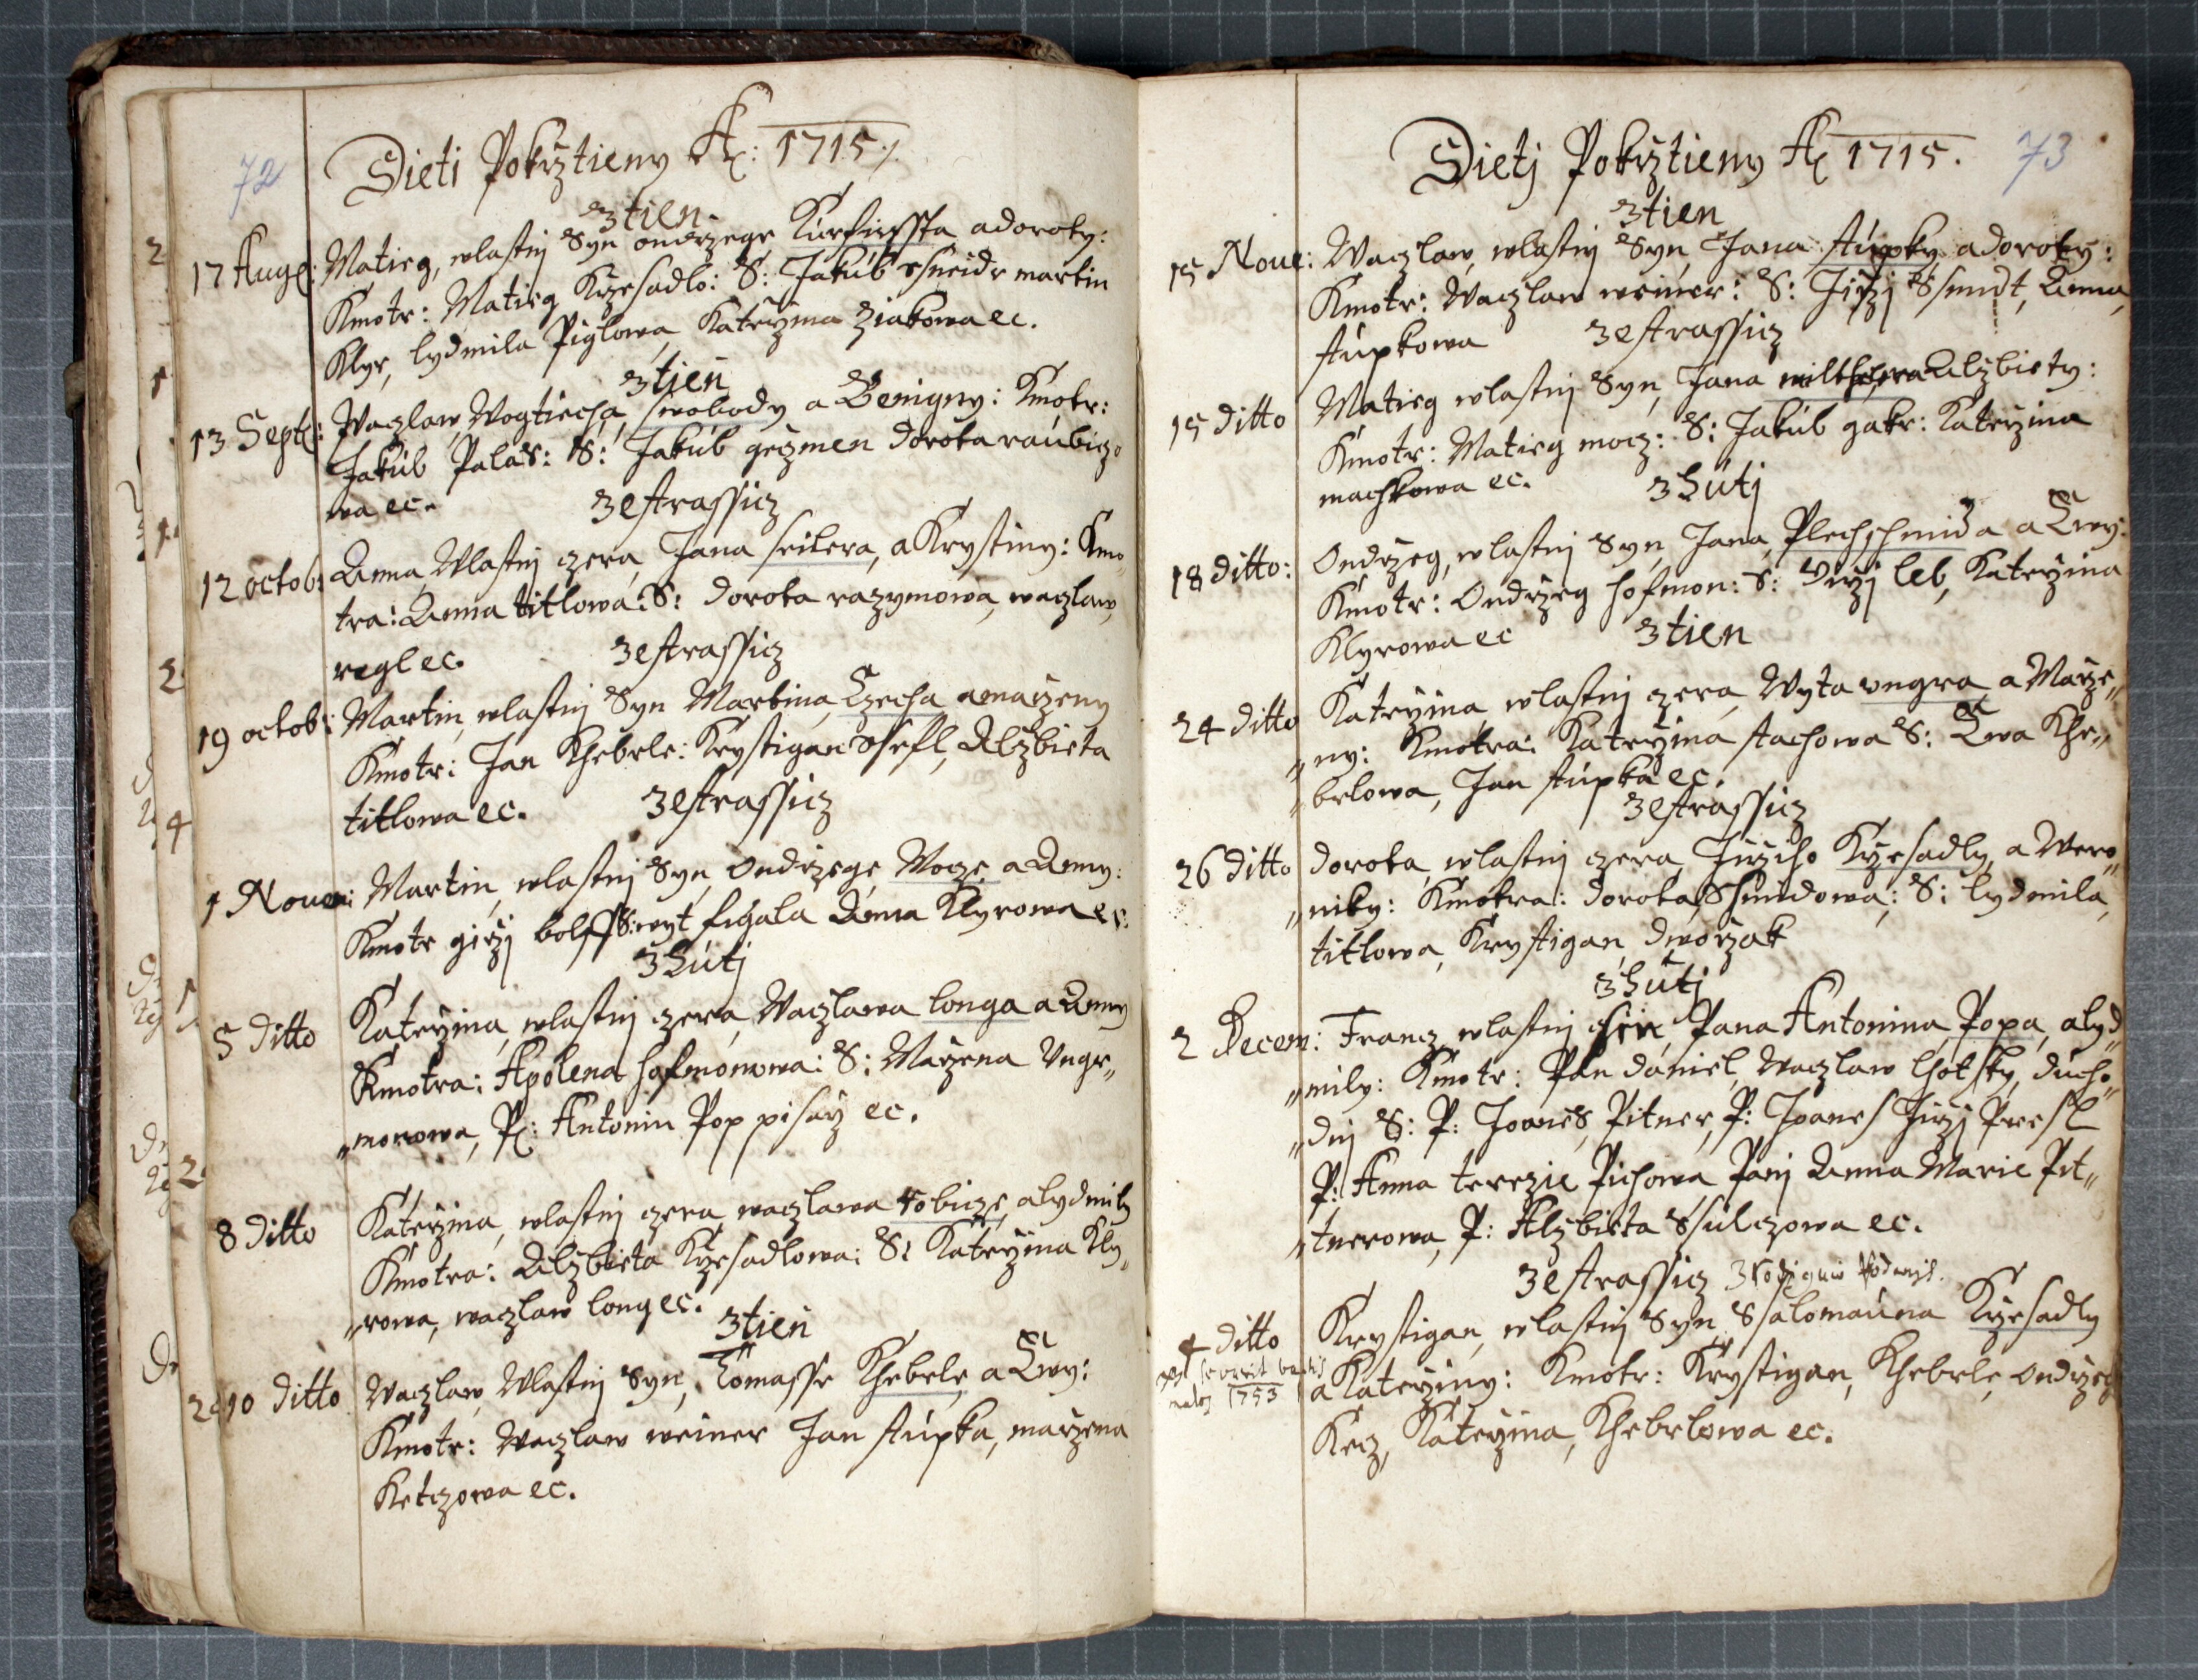 72
Dieti Pokrztieny Aō: 1715 /.
z tien
17 Aug: Matieg, wlastnj Syn ondrzege Kurfirssta a doroty:
Kmotr: Matieg Krzesadlo: S: Jakub ssneidr martin
Klyr, lydmila Piglowa, Katerzina Ziakowa ec.
z tien
13 Sept: Waczlaw Wogtiecha swobody a Benigny: Kmotr:
Jakub Palas: S: Jakub geczmen dorota raubiczo
wa ec.
ze strassicz
12 octob: Anna Wlastnj czera Jana seilera, a Krystiny: Kmo
tra: Anna titlowa: S: dorota razymowa, waczlaw,
regl ec.
ze strassicz
19 octob: Martin, wlastnj Syn Martina Czecha a marzeny
Kmotr: Jan Khebrle: Krystigan ssefl, Alzbieta
titlowa ec.
ze strassicz
1 Nouem: Martin, wlastnj Syn, Ondrzege Mocze a Anny:
Kmotr girzj bolff S: wyt figala Anna Klyrowa ec:
z Hutj
5 ditto Katerzina, wlastnj czera, Waczlawa longa a Anny
Kmotra: Apolena hofmonowa: S: Marzena Ungr„
„monowa, P: Antonin Pop pisarz ec.
8 ditto Katerzina, wlastnj czera waczlawa robicze, a lydmily
Kmotra: Alzbieta Krzesadlowa: S: Katerzina Kly„
„rowa, waczlaw long ec.
z tien
10 ditto Waczlaw, Wlastnj Syn, Tomasse Khebrle, a Ewy:
Kmotr: Waczlaw weiner Jan stupka, marzena
Ketczowa ec.
73
Dietj Pokrztieny Aō 1715.
z tien
15 Noue: Waczlaw, wlastnj Syn, Jana stupky a doroty:
Kmotr: Waczlaw weiner: S: Jirzj Ssmidt, Anna,
stupkowa
ze strassicz
15 ditto Matieg wlastnj Syn, Jana Alzbiety:
Kmotr: Matieg mocz: S: Jakub gakr: Katerzina
machkowa ec.
z Hutj
18 ditto: Ondrzeg, wlastnj Syn, Jana, Plechschmida a Ewy:
Kmotr: Ondrzeg hofmon: S: Jirzj leb, Katerzina
Klyrowa ec
z tien
24 ditto Katerzina wlastnj czera, Wyta ungra, a Marze„
„ny: Kmotra: Katerzina stachowa S: Ewa Khe„
„brlowa, Jan stupka ec.
ze strassicz
26 ditto dorota, wlastnj czera Jirziho Krzesadly, a Wero„
„niky: Kmotra: dorota, Ssmidowa: S: lydmila,
titlowa, Krystigan, dworzak
z Hutj
2 Decem: Francz, wlastnj sin, Pana Antonina, Popa, a lyd„
„mily: Kmotr: Pan daniel, Waczlaw lhotsky, ducho„
„dnj S: P: Joanes, Pitner, P: Joanes Jirzj Presl
P: Anna terezie Pichowa Panj Anna Marie Pit„
„tnerowa, P: Alzbieta Ssulczowa ec.
ze strassicz
4 ditto Krystigan, wlastnj Syn Ssalomauna Krzesadly
1753 a Katerziny: Kmotr: Krystigan, Khebrle, ondrzeg
Kecz, Katerzina, Khebrlowa ec.